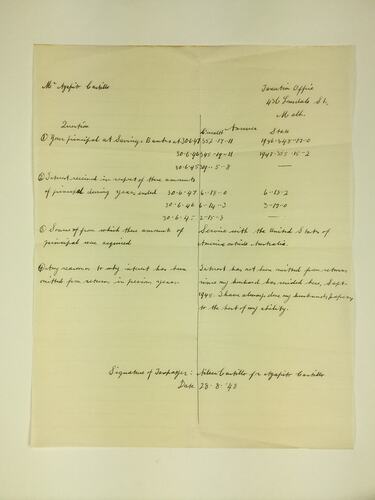 Mr Agapito Castillo
Taxation Office
436 Lonsdale St,
Melb.
Question
Answers
Commonwealth State
① Your principal at Savings Banks at 30-6-47 352-17-11
30-6-46 345-19-11
② Interest received in respect of these amounts
of principal during years ended 30-6-47 6-18-0 6-13-2
30-6-46 6-14-3 3-17-0
30-6-45 2-15-3 —
③ Source from which these amounts of
principal was acquired
Service with the United States of
America outside Australia.
④ Any reasons as to why interest has been
omitted from returns in previous years.
Interest has not been omitted from returns
since my husband has resided here, Sept.
1945. I have always done my husband's papers
to the best of my ability.
Signature of Taxpayer: Aileen Castillo for Agapito Castillo
Date 28.8.'48